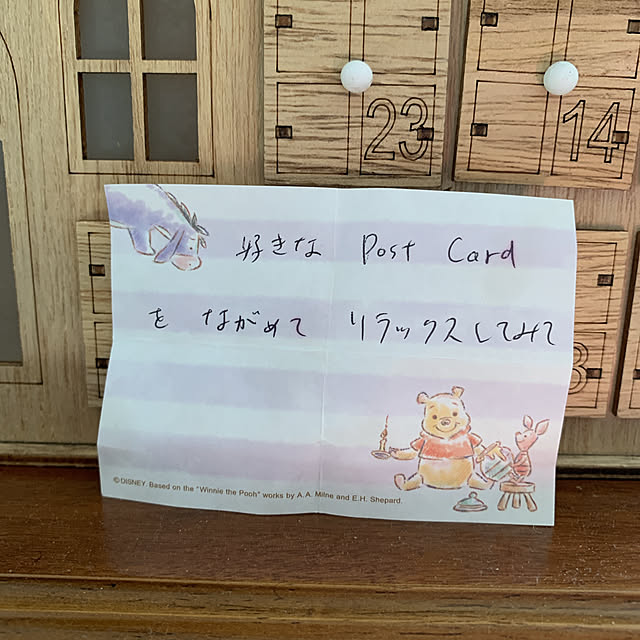 23
14
好きな Post Card
を ながめて リラックスしてみて
8
© DISNEY. Based on the "Winnie the Pooh" works by A.A. Milne and E.H. Shepard.